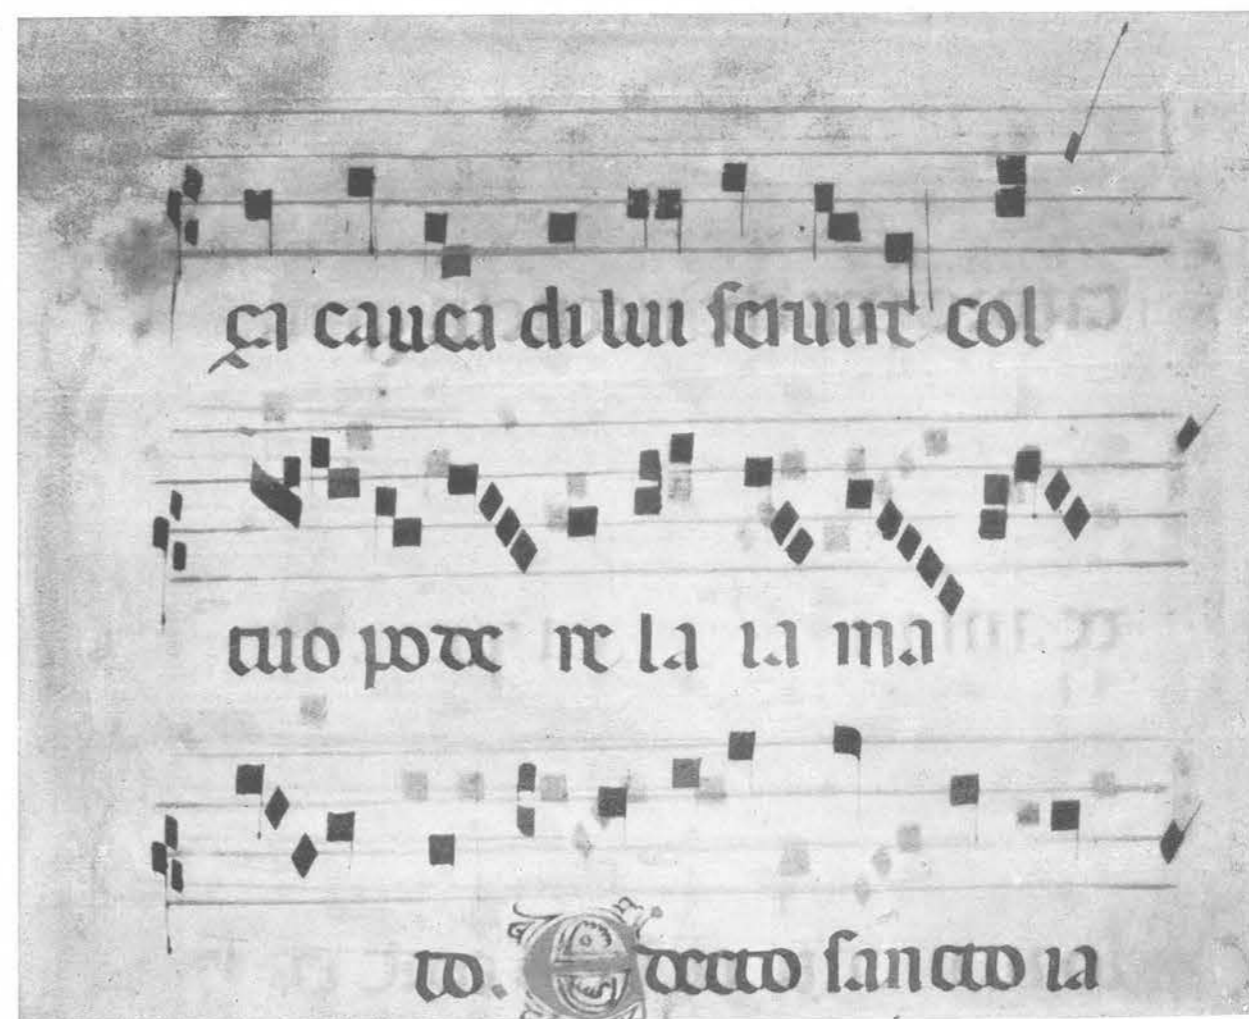 ça cauca di lui seruut col
tuo pode re la ia ma
to. Edecto sancto ia